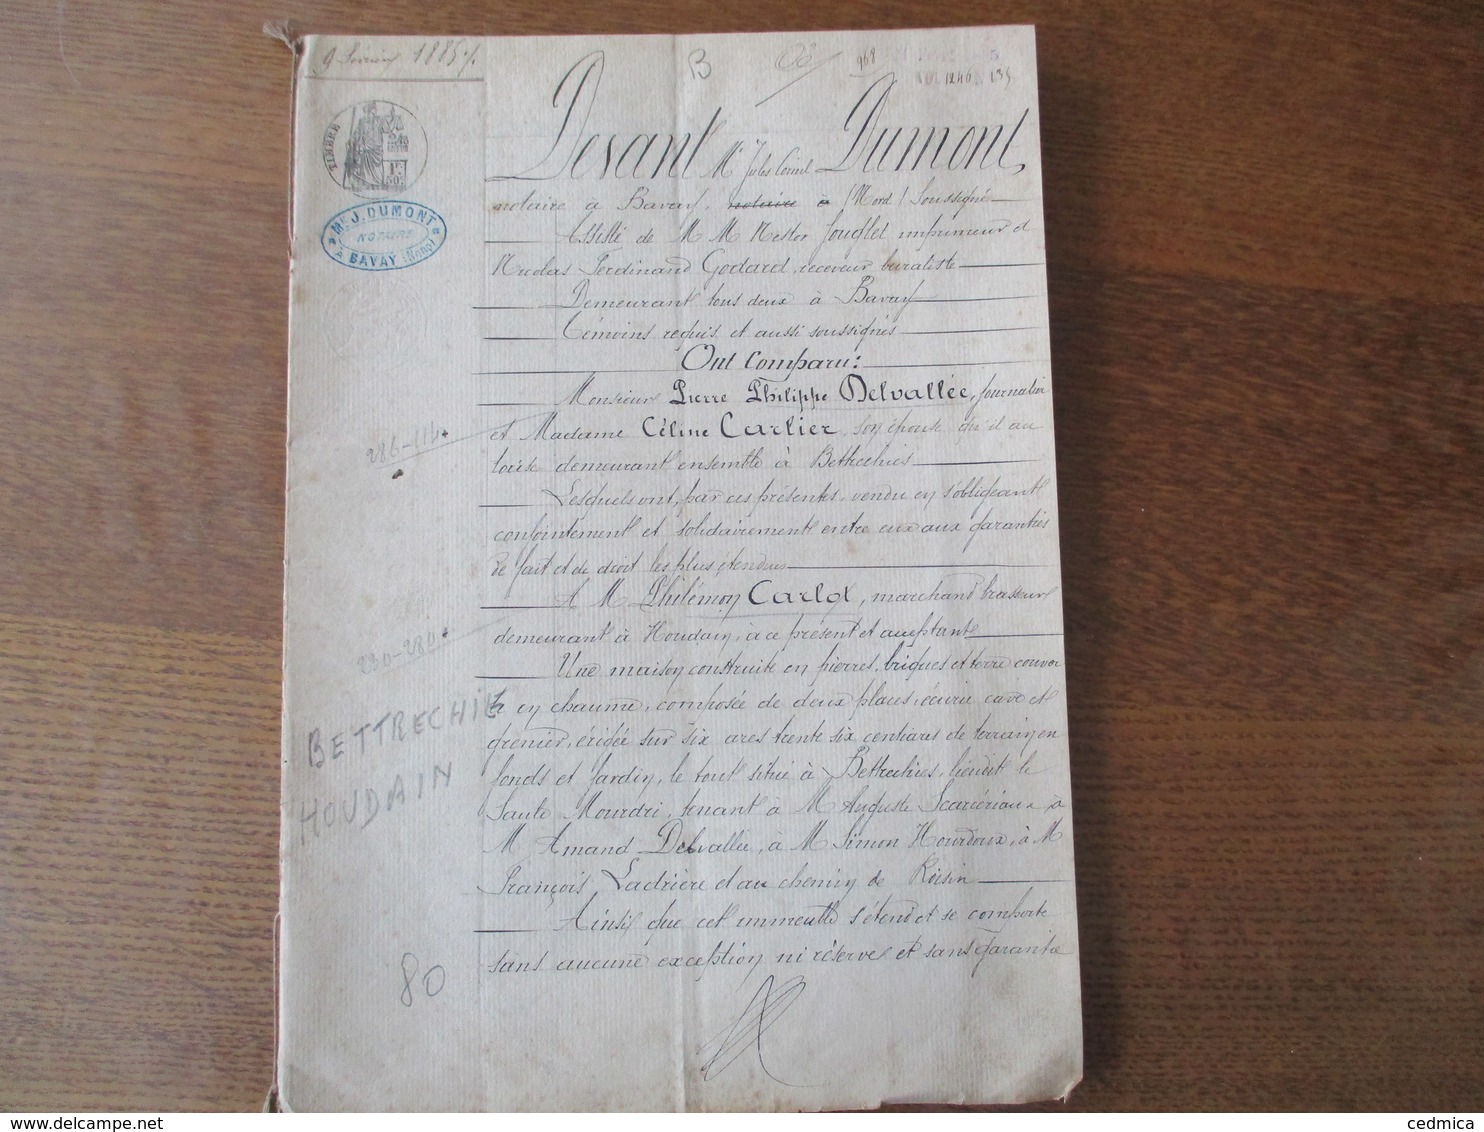 9 février 1885
B
968
1246
TIMBRE
1F
50c
Mtre J. DUMONT
NOTAIRE
A BAVAY (Nord)
Devant Me Jules Dumont,
notaire à Bavay, notaire à (Nord) Soussigné
Assisté de M M Nestor Jouglet imprimeur et
Nicolas Ferdinand Godard, receveur buraliste
Demeurant tous deux à Bavay
Témoins requis et aussi soussignés
Ont Comparu :
Monsieur Pierre Philippe Delvallée, journalier
et Madame Céline Carlier, son épouse qu'il au
torise demeurant ensemble à Bettrechies
286-114+
Lesquels ont, par ces présentes, vendu en s'obligeant
conjointement et solidairement entre eux aux garanties
de fait et de droit les plus étendues
A M Philémon Carlot, marchand brasseur
demeurant à Houdain, à ce présent et acceptant
230-280+
Une maison construite en pierres, briques et terre couver
te en chaume, composée de deux places, écurie cave et
grenier, érigée sur six ares trente six centiares de terrain en
fonds et jardin, le tout situé à Bettrechies, lieudit le
BETTRECHIES
HOUDAIN
Saute Mourdri, tenant à M Auguste à
M Amand Delvallée, à M Simon Hourdoux, à M
François Ladrière et au chemin de Roisin
Ainsi que cet immeuble s'étend et se comporte
sans aucune exception ni réserve et sans garantie
80
cedmica